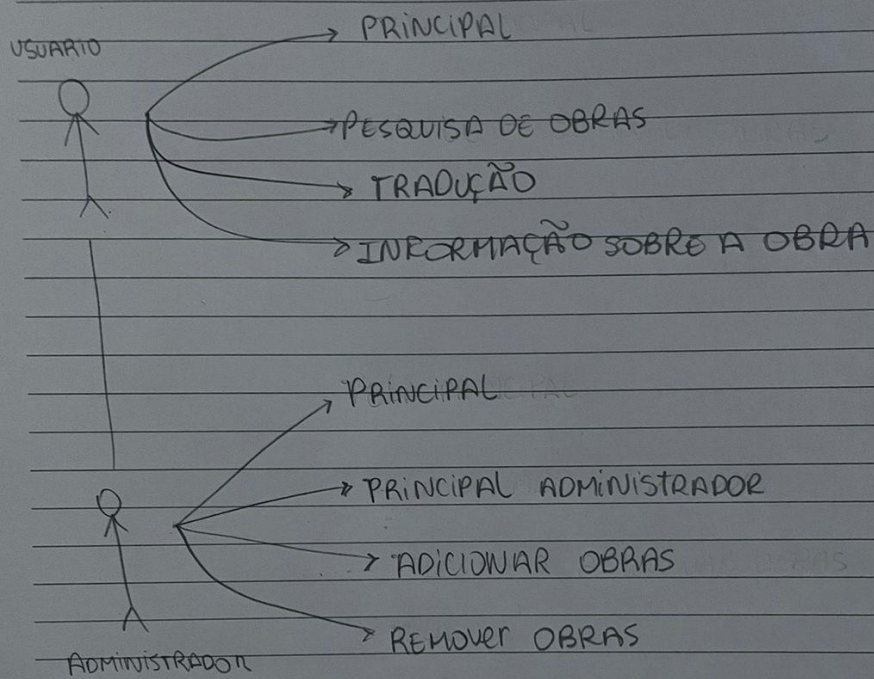 USUARIO
PRINCIPAL
PESQUISA DE OBRAS
TRADUÇÃO
INFORMAÇÃO SOBRE A OBRA
PRINCIPAL
PRINCIPAL ADMINISTRADOR
ADICIONAR OBRAS
REMOVER OBRAS
ADMINISTRADOR